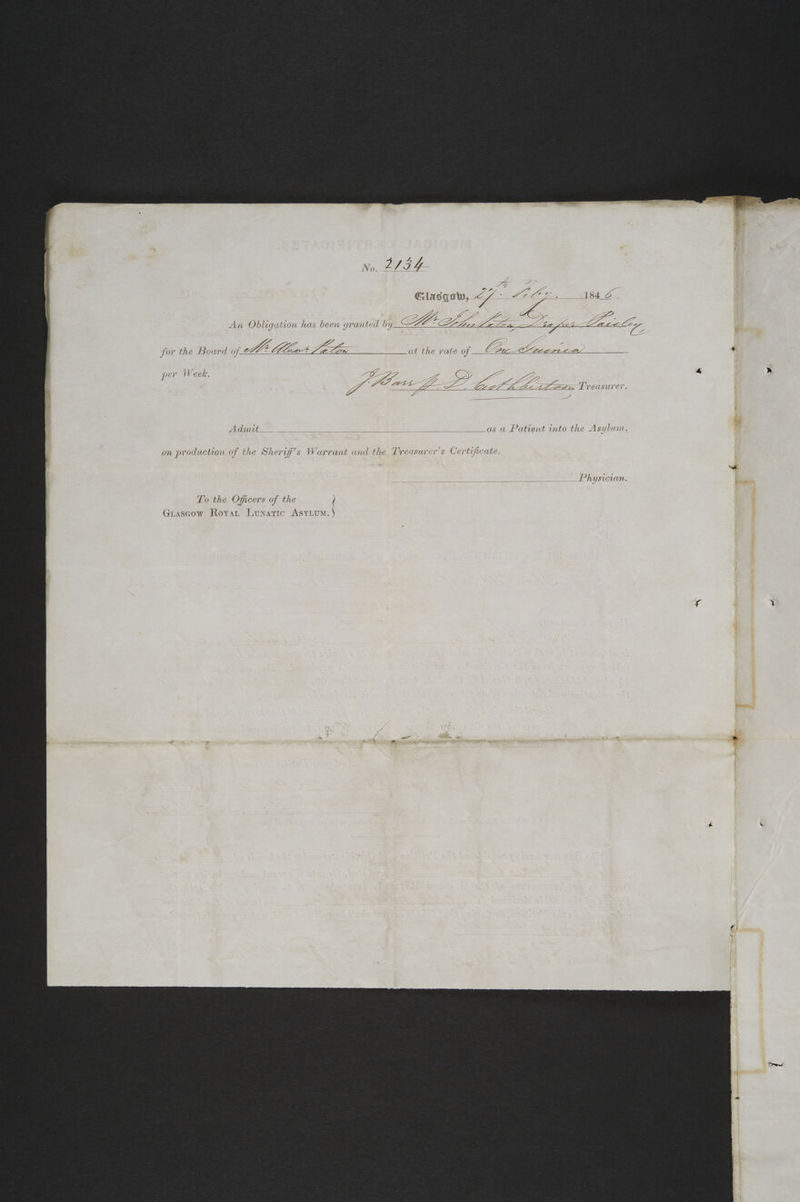 No. 2134
Glasgow, 27th Feby. 1846.
An Obligation has been granted by Mr John Paton, Draper Paisley
for the Board of Mr Alexr Paton at the rate of One Guinea
per Week.
J Barr p. D. Cuthbertson Treasurer.
Admit as a Patient into the Asylum,
on production of the Sheriff's Warrant and the Treasurer's Certificate.
Physician.
To the Officers of the
Glasgow Royal Lunatic Asylum.